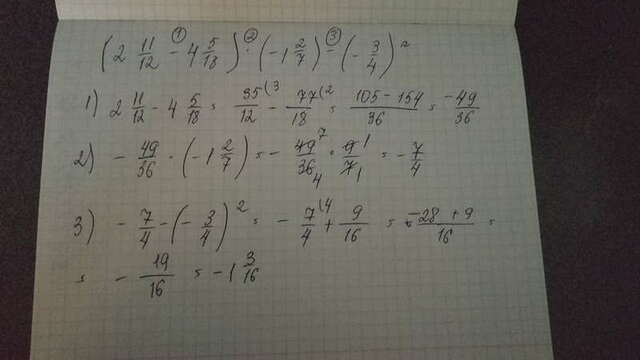 (2 11/12 ①- 4 5/18) ②· (-1 2/7) ③- (-3/4)²
1) 2 11/12 - 4 5/18 = 35(3/12 - 77(2/18 = 105-154/36 = -49/36
2) - 49/36 · (-1 2/7) = - 49 7/36 4 · 9 1/7 1 = - 7/4
3) - 7/4 - (-3/4)² = - 7(4/4 + 9/16 = -28+9/16 =
= - 19/16 = -1 3/16